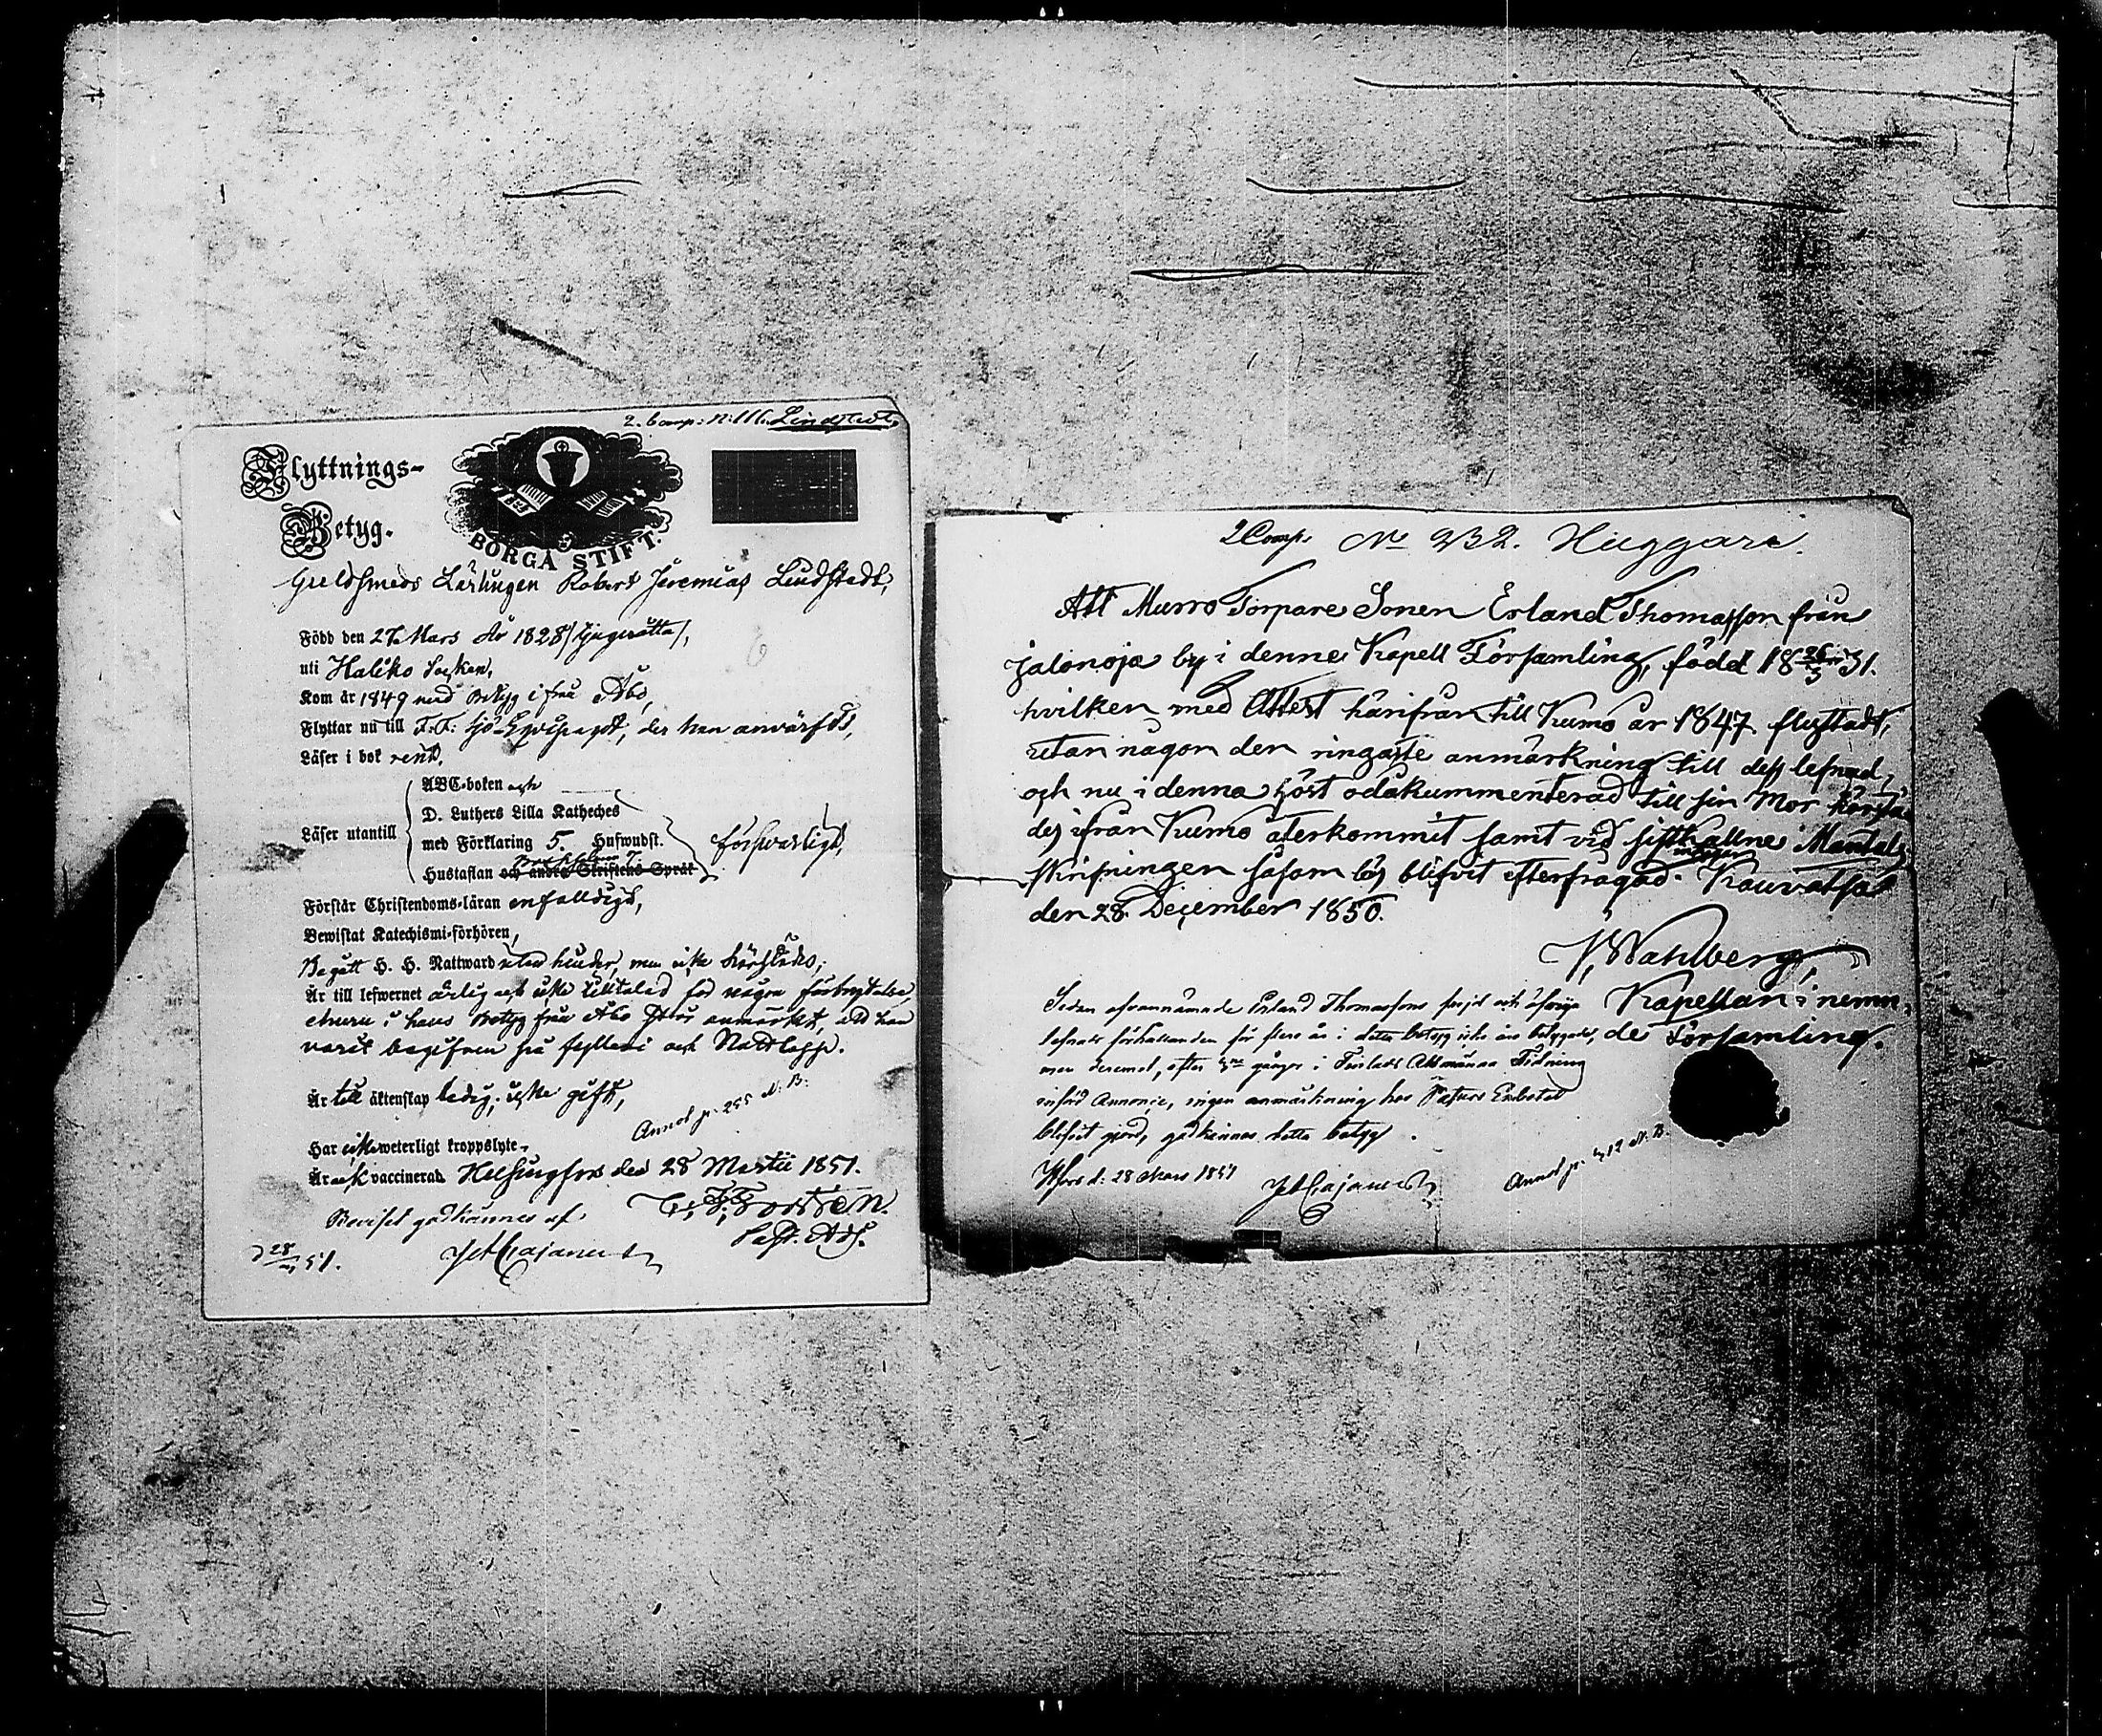 2. Comp: N:116. Lindstedt,
Flyttnings-
Betyg.
BORGÅ STIFT.
Guldsmeds Lärlingen Robert Jeremias Lindstedt,
Född den 27. Mars År 1828 /tjuguåtta/,
uti Haliko Socken,
Kom år 1849 med Betyg ifrån Åbo,
Flyttar nu till F.F. Sjö-Equipaget, der han anvärfts,
Läser i bok rent,
ABC-boken och
D. Luthers Lilla Katheches
Läser utantill
med Förklaring 5. Hufwudst.
försvarligt,
Hustaflan och andra Skriftens Språk
Förstår Christendoms-läran enfaldigt,
Bewistat Katechismi-förhören,
Begått H. H. Nattward utan hinder, men icke härstädes;
Är till lefwernet ärlig och icke tilltalad för någon förbrytelse,
ehuru i hans Betyg från Åbo står anmärkt, att han
varit begifven på fylleri och Nattlopp.
Är till äktenskap ledig, icke gift,
Annot p. 255 N. B.
Har icke weterligt kroppslyte,
Är ock vaccinerad. Helsingfors den 28 Martii 1851.
Beviset godkännes af
Past. Adj.
d 28/3 51.
2 Comp. No 232. Huggare.
Att Murro Torpare Sonen Erland Thomasson från
Jalonoja by i denne Kapell Församling, född 18 26/3 31.
hvilken med Attest härifrån till Kumo år 1847 flyttadt,
utan någon den ringaste anmärkning till dess lefnad,
och nu i denna höst odokummenterad till sin Mor
des ifrån Kumo återkommit samt vid sisthållne Mantals
skrifningen såsom lös blifvit efterfrågad. Kauvatsa
den 28. December 1850.
Wahlberg
Kapellan i nemn-
de Församling.
Sedan ofvannämnde Erland Thomassons frejd och öfriga
lefnads förhållanden för flere år i detta betyg icke äro betygade,
men deremot, efter 3ne gånger i Finlands Allmänna Tidning
införd Annonce, ingen anmärkning hos Pastors Embetet
blifvit gjord, godkännes detta betyg.
Hfors d: 28 Mars 1851
Annot p. 412 N. B.